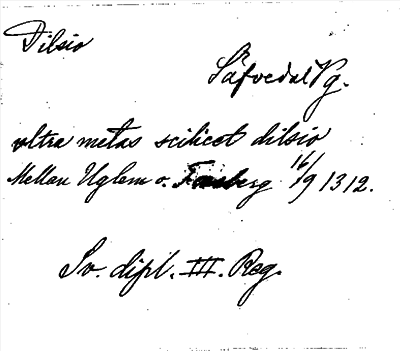 Dilsio
Säfvedal Vg.
ultra metas scilicet dilsio
Mellan Uglum o. Forsberg 16/9 1312.
Sv. dipl. III. Reg.